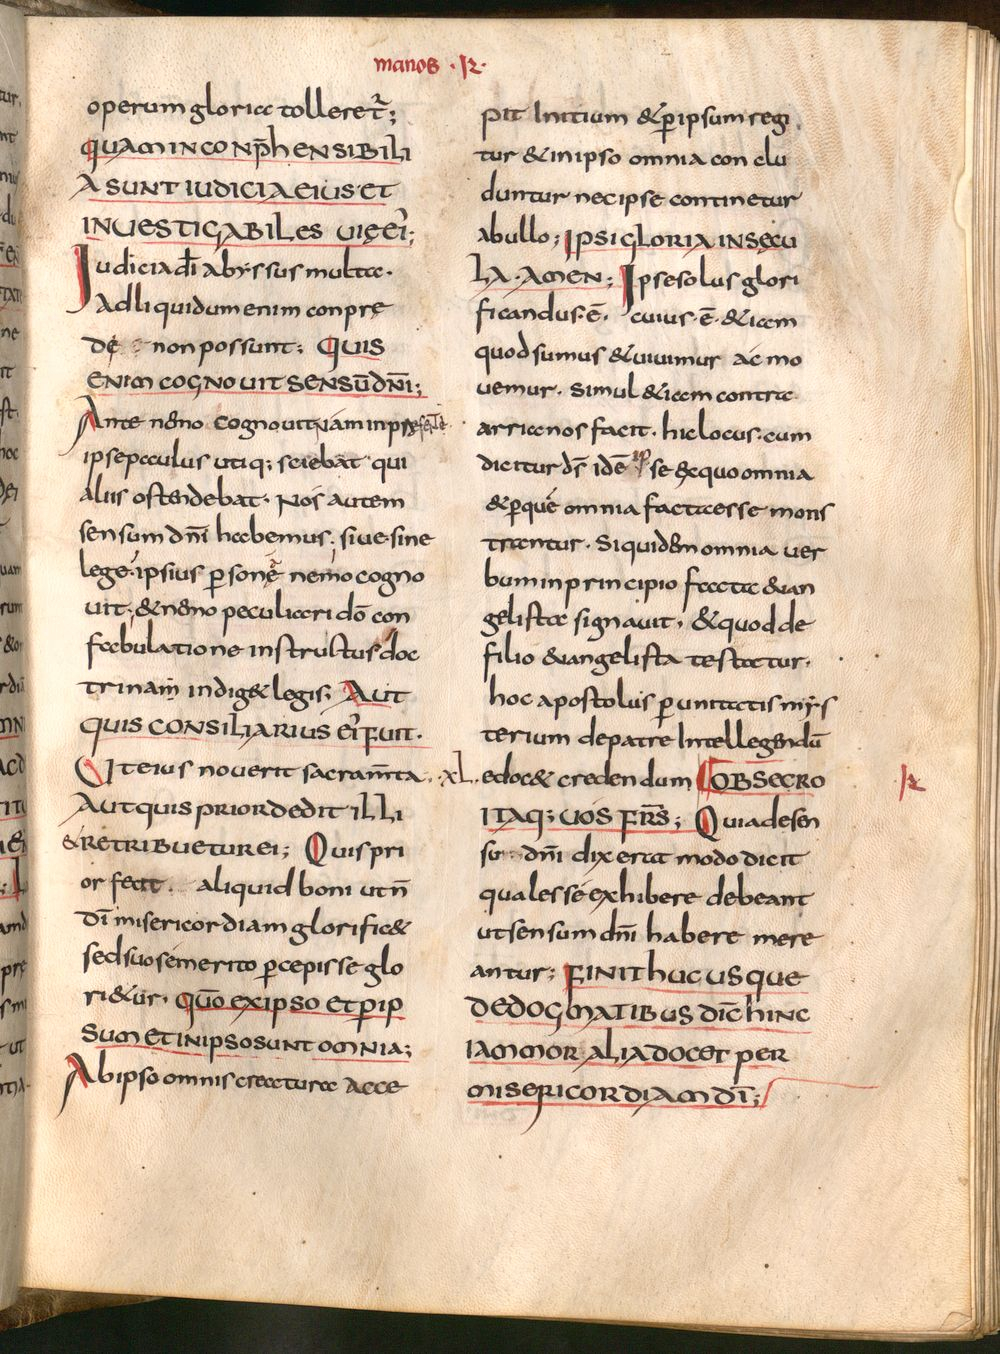 manos · R ·
operum gloriae tolleret̄;
QUAM INCONP̄HENSIBILI
A SUNT IUDICIA EIUS ET
INUESTIGABILES UIĘ EI';
Iudicia dī abyssus multae·
Ad liquidum enim conprę
dę non possunt; QUIS
ENIM COGNOUIT SENSŪ DN̄I;
Ante nemo cognouit nam in p̄
ipse paulus utiq; sciebat qui
aliis ostendebat· Nos autem
sensum dn̄i habemus; siue sine
lege ipsius personę nemo cogno
uit; & nemo peculiari dō con
fabulatione instructus doc
trinam indig& legis; AUT
QUIS CONSILIARIUS EI' FUIT·
Ut eius nouerit sacram̄ta·
AUT QUIS PRIOR DEDIT ILLI
& RETRIBUETUR EI; Quis pri
or fecit aliquid boni ut n̄
dī misericordiam glorific&
sed suo se merito p̄cepisse glo
ri&ur· QUŌ EX IPSO ET P̄ IP
SUM ET IN IPSO SUNT OMNIA;
Ab ipso omnis creatura acce
pit Initium & p̄ ipsum regi
tur & in ipso omnia conclu
duntur nec ipse continetur
ab ullo; IPSI GLORIA IN SĘCU
LA·AMEN; Ipse solus glori
ficandus·ē· cuius·ē· & iam
quod sumus & uiuimur ac mo
uemur· Simul & iam contra
arrianos facit· hic locus· cum
dicitur dš idē ip se ex quo omnia
& p̄ quē omnia facta esse mons
trantur· Siquidem omnia uer
bum in principio facta euan
gelista signauit· & quod de
filio euangelista testatur·
hoc apostolus p̄ unitatis mys
terium de patre Intellegendū
·xl· edoc& credendum OBSECRO
R
ITAQ; UOS FR̄S; Quia de sen
su dn̄i dixerat modo dicit
quales se exhibere debeant
ut sensum dn̄i habere mere
antur; FINIT HUCUSQUE
DE DOGMATIBUS DIC̄ HINC
IAM MOR ALIA DOCET PER
MISERICORDIAM DĪ;